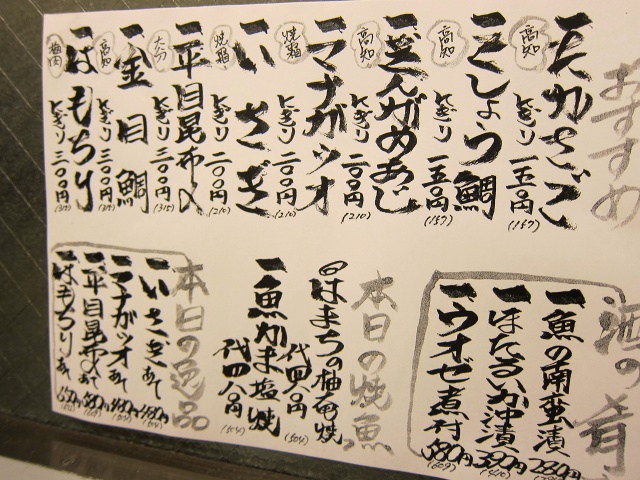 おすすめ
一大かさご
高知
にぎり 一五〇円
(157)
一こしょう鯛
高知
にぎり 一五〇円
(157)
一ぎんがめあじ
高知
にぎり 二〇〇円
(210)
一マナガツオ
にぎり 二〇〇円
(210)
一いさぎ
にぎり 二〇〇円
(210)
一平目昆布〆
大分
にぎり 三〇〇円
(315)
一金目鯛
高知
にぎり 三〇〇円
(315)
一はもちり
梅肉
にぎり 三〇〇円
(315)
酒の肴
一魚の南蛮漬
280円
一ほたるいか沖漬
390円
(410)
一ウオゼ煮付
580円
(609)
本日の焼魚
はまちの柚庵焼
代四八〇円
(504)
一魚かま塩焼
代四八〇円
(504)
本日の逸品
一いさぎあて
480円
(504)
一マナガツオあて
480円
(504)
一平目昆布〆あて
580円
(609)
一はもちりあて